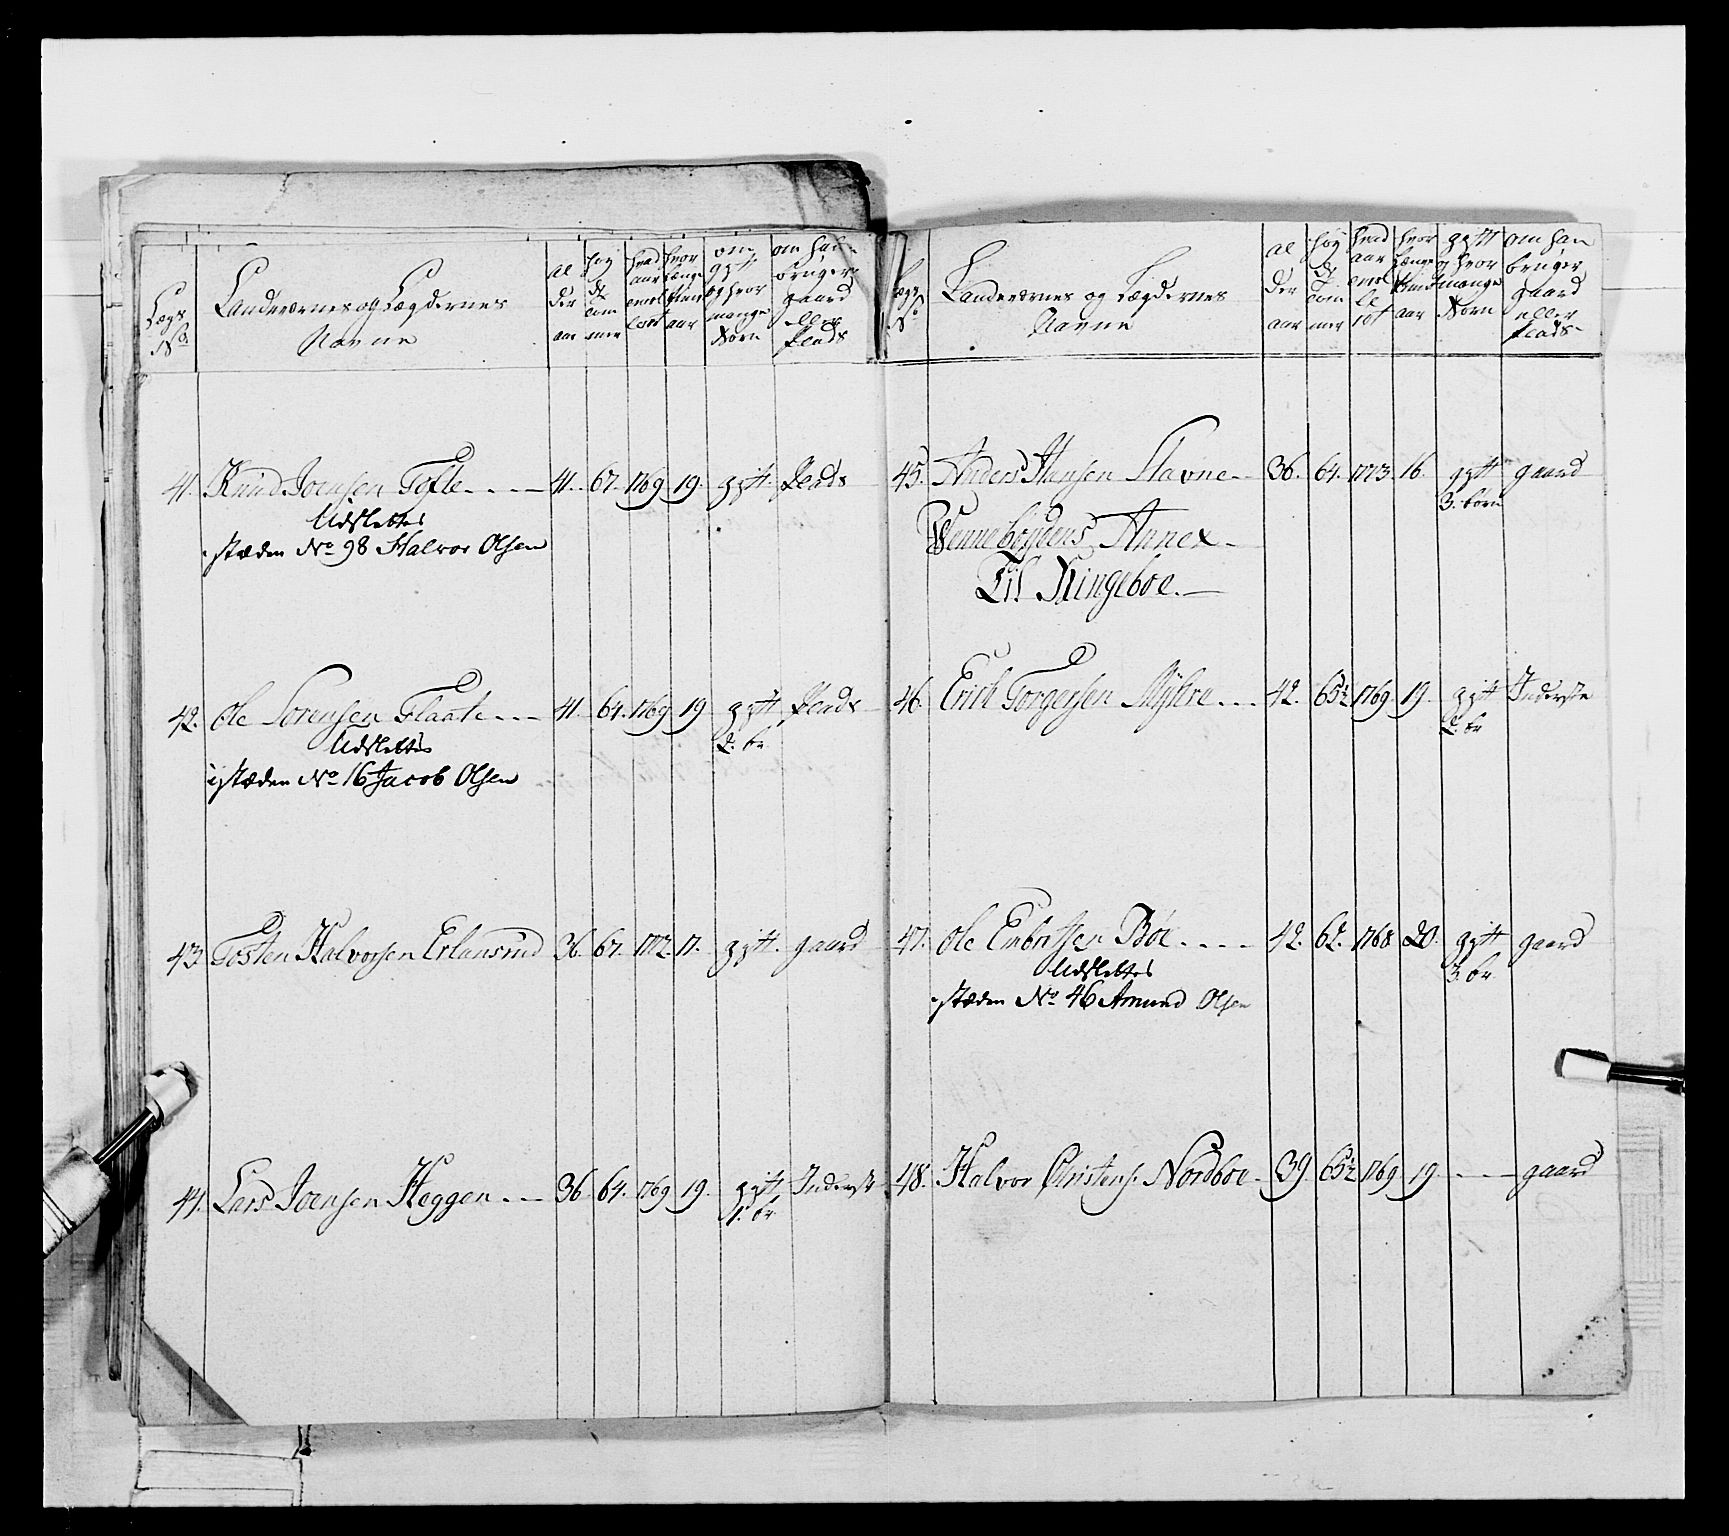 Lægs No
Landeværnes og Lægdernes Navne
al der aar
høy de tom mer
hvad aar enrol leret
hvor længe tient aar
om gift og hvor mange Børn
om han bruger gaard eller Plads
41. Knud Joensen Tofte 41. 67. 1769 19. gift Plads
Udslettes
istæden No 98 Halvor Olsen
42. Ole Sørensen Flaate 41. 64. 1769 19 gift Plads
2. br
Udslettes
istæden No 16 Jacob Olsen
43. Tosten Halvorsen Erlansrud 36. 67. 1772. 17. gift. gaard
44. Lars Joensen Heggen 36. 64. 1769 19. gift Inderste
1. br
Lægs No
Landeværnes og Lægdernes Navne
al der aar
høy de Tom mer
hvad aar enrol le ret
hvor længe tient aar
gift og hvor mange Børn
om han bruger gaard eller Plads
45. Anders Hansen Stavne 36. 64. 1773. 16. gift gaard
3. børn
Wennebøydens Annex
Til Ringeboe.
46. Erich Torgersen Myhre 42. 65½ 1769. 19. gift Inderste
2. br
47. Ole Embretsen Bøe 42. 62. 1768 20. gift gaard
3. br.
Udslettes
istæden No 46 Amund Olsen
48. Halvor Christens: Nordboe 39 65½ 1769 19. gaard